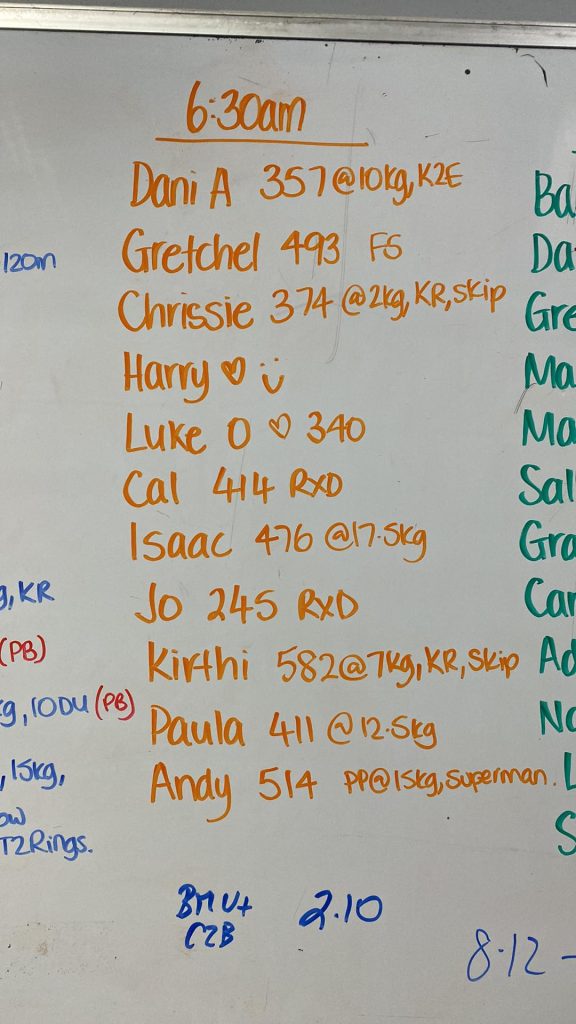 6:30am
Dani A 357@10kg, K2E
Gretchel 493 FS
Chrissie 374 @2kg, KR, skip
Harry ♡ ü
Luke O ♡ 340
Cal 414 RXD
Isaac 476 @17.5kg
Jo 245 RXD
Kirthi 582@7kg, KR, Skip
Paula 411 @ 12.5kg
Andy 514 PP@15kg, superman.
BMU+ 2.10
C2B
120m
g, KR
(PB)
g, 10DU (PB)
, 15kg,
ow
T2Rings.
Ba
Da
Gre
Ma
Ma
Sal
Gra
Car
Ad
No
L
S
8.12 -